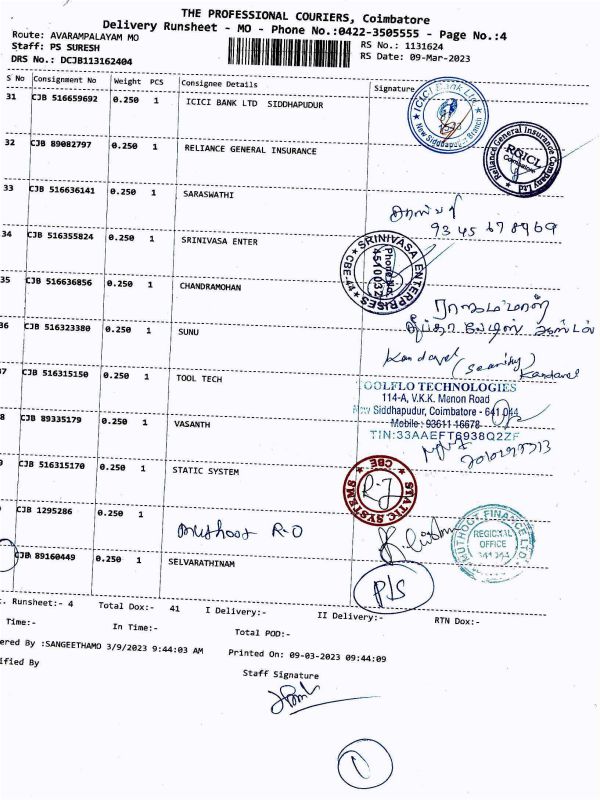 THE PROFESSIONAL COURIERS, Coimbatore
Delivery Runsheet - MO - Phone No.:0422-3505555 - Page No.:4
Route: AVARAMPALAYAM MO
Staff: PS SURESH
DRS No.: DCJB113162404
RS No.: 1131624
RS Date: 09-Mar-2023
S No Consignment No Weight PCS Consignee Details Signature
31 CJB 516659692 0.250 1 ICICI BANK LTD SIDDHAPUDUR
ICICI Bank Ltd
New Siddapudur Branch
32 CJB 89082797 0.250 1 RELIANCE GENERAL INSURANCE
Reliance General Insurance Company Ltd
RGICL
Coimbatore
33 CJB 516636141 0.250 1 SARASWATHI
34 CJB 516355824 0.250 1 SRINIVASA ENTER
SRINIVASA ENTERPRISES
Phone No.
35 CJB 516636856 0.250 1 CHANDRAMOHAN
36 CJB 516323380 0.250 1 SUNU
Kandavel (Security)
Kandavel
7 CJB 516315150 0.250 1 TOOL TECH
TOOLFLO TECHNOLOGIES
114-A, V.K.K. Menon Road
New Siddhapudur, Coimbatore - 641 044
Mobile : 93611 16678
TIN:33AAEFT6938Q2ZF
8 CJB 89335179 0.250 1 VASANTH
9 CJB 516315170 0.250 1 STATIC SYSTEM
STATIC SYSTEMS
CBE
R-J
CJB 1295286 0.250 1
Muthoot R-O
MUTHOOT FINANCE LTD.
REGIONAL
OFFICE
CJB 89160449 0.250 1 SELVARATHINAM
P/S
t. Runsheet:- 4 Total Dox:- 41 I Delivery:- II Delivery:- RTN Dox:-
Time:- In Time:- Total POD:-
ered By :SANGEETHAMO 3/9/2023 9:44:03 AM Printed On: 09-03-2023 09:44:09
ified By
Staff Signature
1